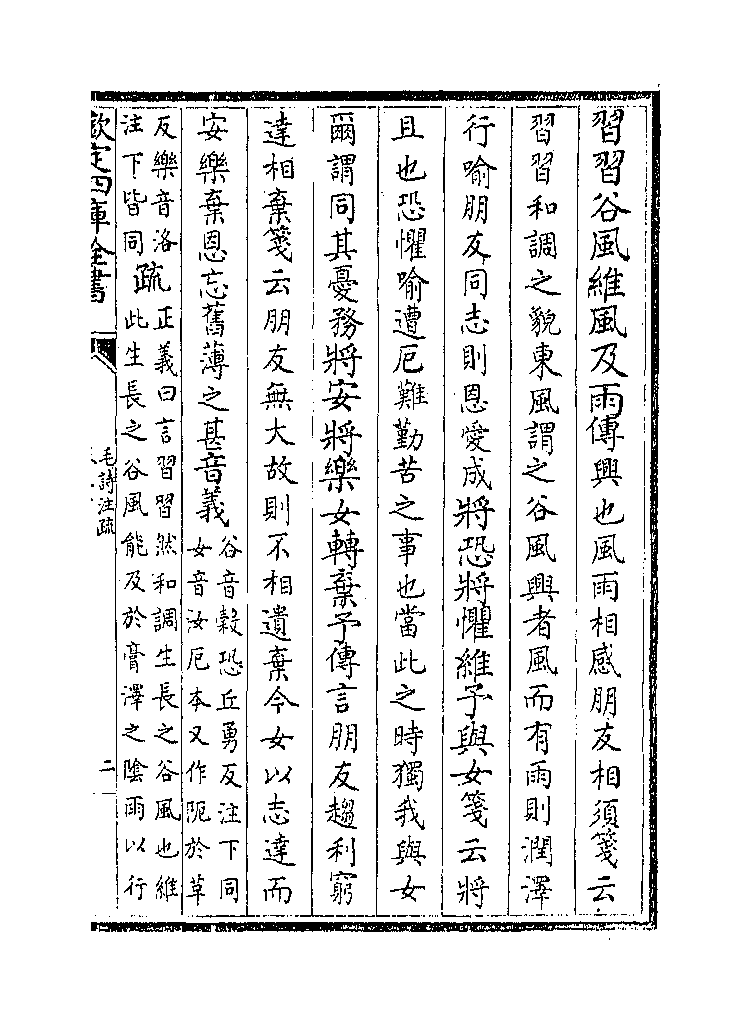 習習谷風維風及雨傳興也風雨相感朋友相須箋云
習習和調之貌東風謂之谷風興者風而有雨則潤澤
行喻朋友同志則恩愛成將恐將懼維予與女箋云將
且也恐懼喻遭厄難勤苦之事也當此之時獨我與女
爾謂同其憂務將安將樂女轉棄予傳言朋友趨利窮
達相棄箋云朋友無大故則不相遺棄今女以志達而
安樂棄恩忘舊薄之甚音義
谷音穀恐丘勇反注下同
女音汝厄本又作阨於革
反樂音洛
注下皆同
疏
正義曰言習習然和調生長之谷風也維
此生長之谷風能及於膏澤之陰雨以行
欽定四庫全書
毛詩注疏
二